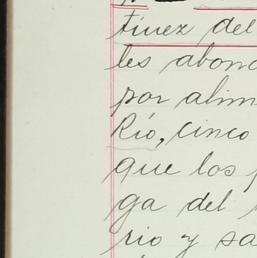 tínez del
les abono
por alim
Río, cinco
que los p
ga del
rio y sa